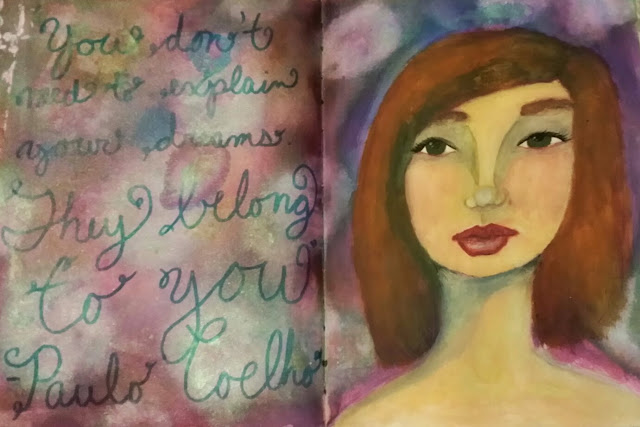 You don't
need to explain
your dreams.
They belong
to you
-Paulo Coelho